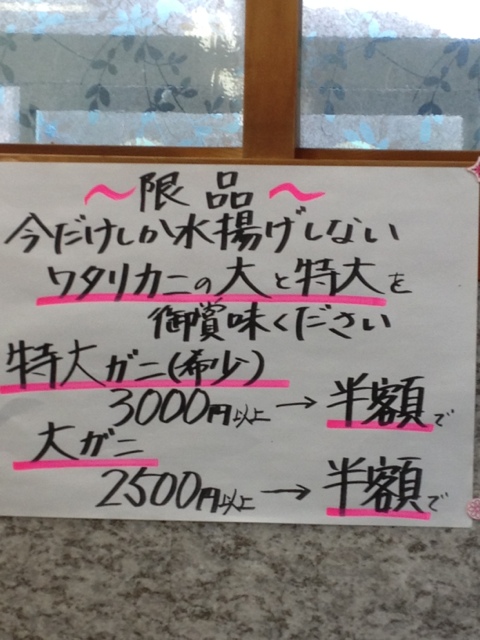 ～限品～
今だけしか水揚げしない
ワタリカニの大と特大を
御賞味ください
特大ガニ(希少)
3000円以上→半額で
大ガニ
2500円以上→半額で